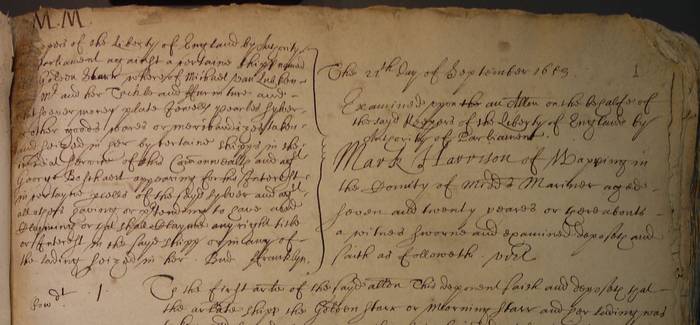 M.M.
Keepers of the Liberty of England by Authority
Parliament against a certaine shipp named
whereof Michael Van Lubken
Mr and her Tackle and Furniture and
money plate Jewells pearles sylver
other goods wares or merchandizes taken
and seized in her by certaine shipps in the
service of this Comonwealth and agt
George Boschaert appearing for his Interest
in certayne pieces of the sayd sylver and agt
all others having or pretending to have and
Clayming or that shall Clayme any right title
or Interest in the sayd shipp or in any of
the lading seized in her. Bud Francklyn.
The 21th day of September 1653
1
Examined upon the an Allon on the behalfe of
the sayd Keepers of the Liberty of England by
Authority of Parliament
Mark Harrison of Wapping in
the County of Midds Mariner aged
seven and twenty yeares or thereabouts
a witnes sworne and examined deposeth and
saith as followeth. vizt
1. To the first arle of the sayd allon This deponent saith and deposeth that
the arlate shipp the Golden Starr or Morning Starr and her lading was